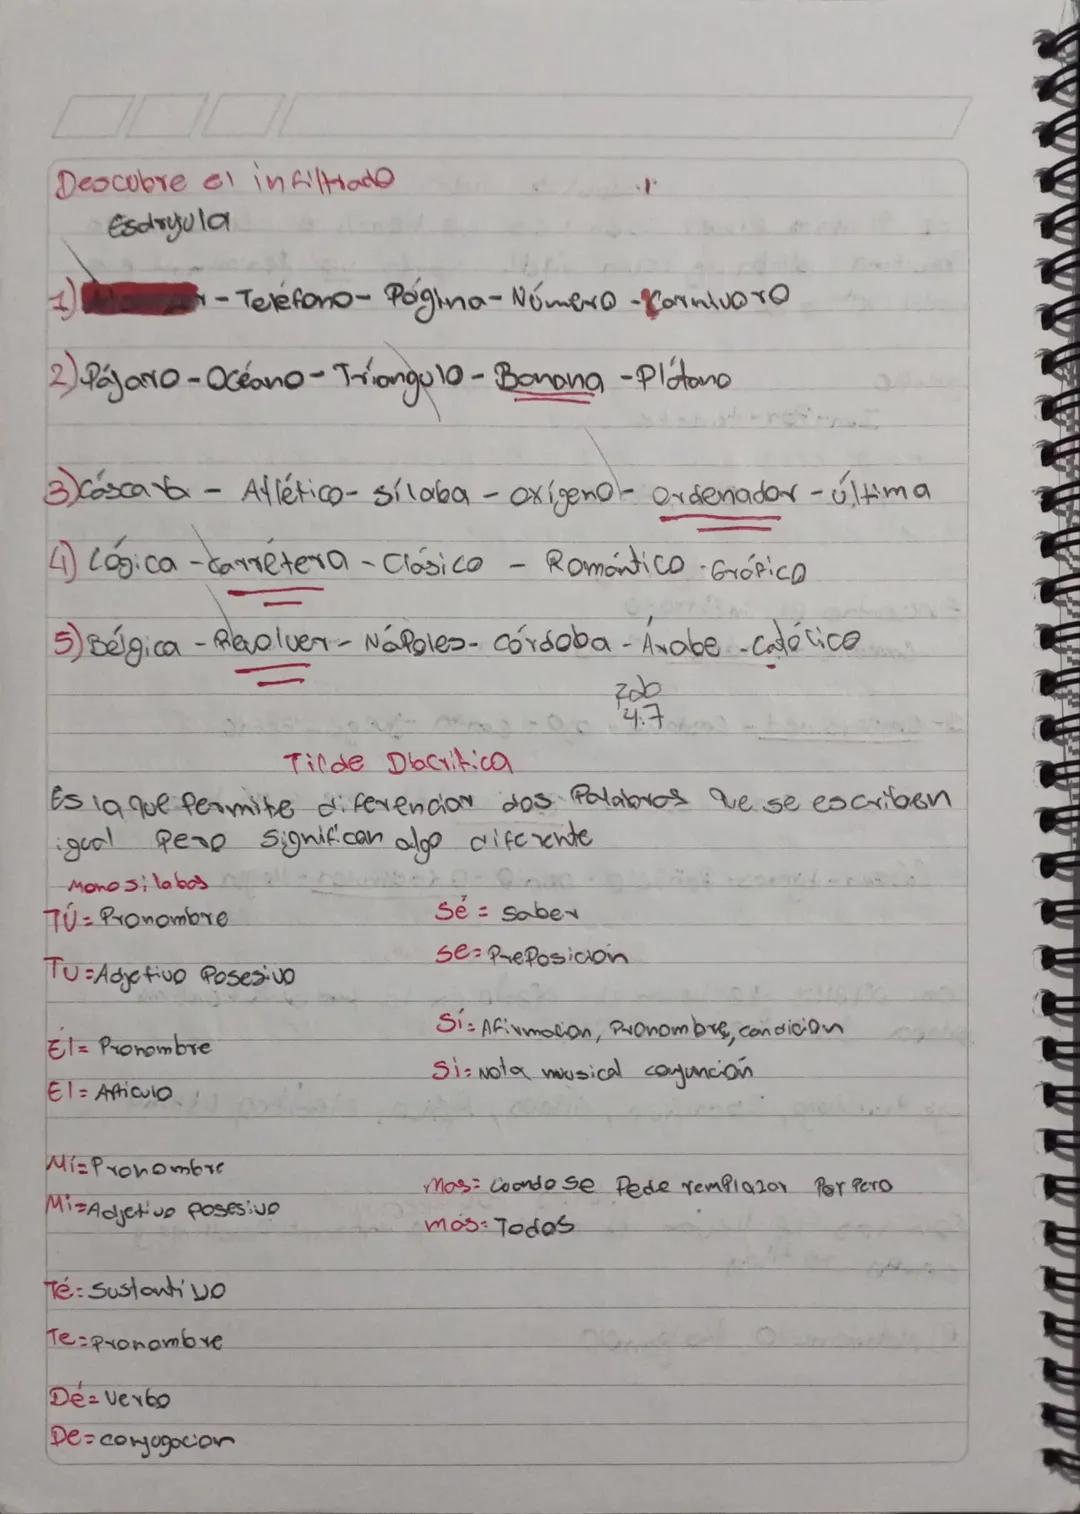 Descubre el infiltrado
Esdrujula
1) - Teléfono - Página - Número - Carnivoro
2) Pájaro - Océano - Tríangulo - Banana - Plátano
3) Cáscara - Atlético - sílaba - oxígeno - ordenador - última
4) Lógica - carrétera - Clásico - Romántico - Gráfico
5) Bélgica - Revolver - Nápoles - Córdoba - Árabe - católico
4.7
Tilde Diacritica
Es la que permite diferenciar dos Palabras que se escriben
igual pero significan algo diferente
Monosilabos
TÚ = Pronombre
Sé = saber
se = PrePosición
TU = Adjetivo Posesivo
Sí = Afirmacion, Pronombre, condición
Él = Pronombre
Si = Nota musical conjunción
El = Articulo
Mí = Pronombre
Mas = Cuando se Pede remplazar Por Pero
Mi = Adjetivo posesivo
más = Todos
Té = Sustantivo
Te = Pronombre
Dé = Verbo
De = conjugacion